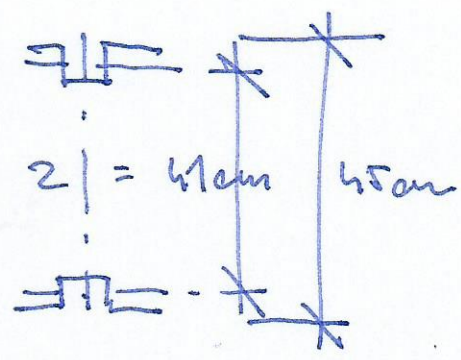 2 | = 41cm 45cm